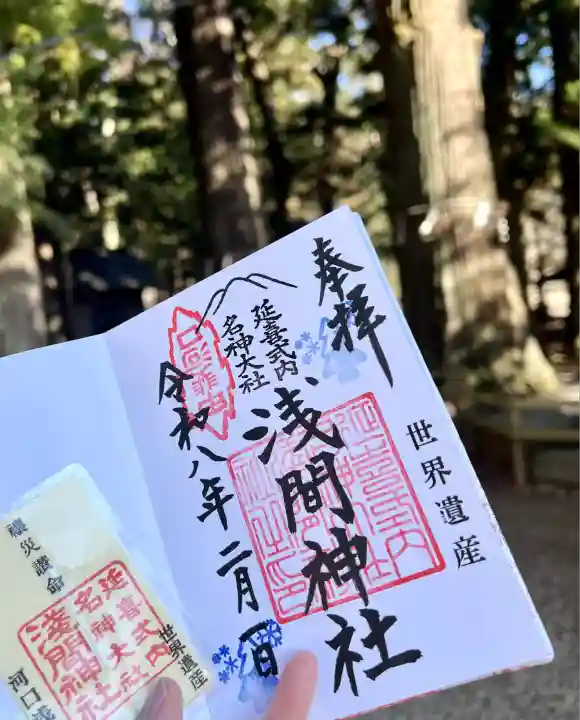 奉拝
世界遺産
延喜式内
名神大社
浅間神社
令和八年二月一日
延喜式内
名神大社
浅間神社
世界遺産
河口浅